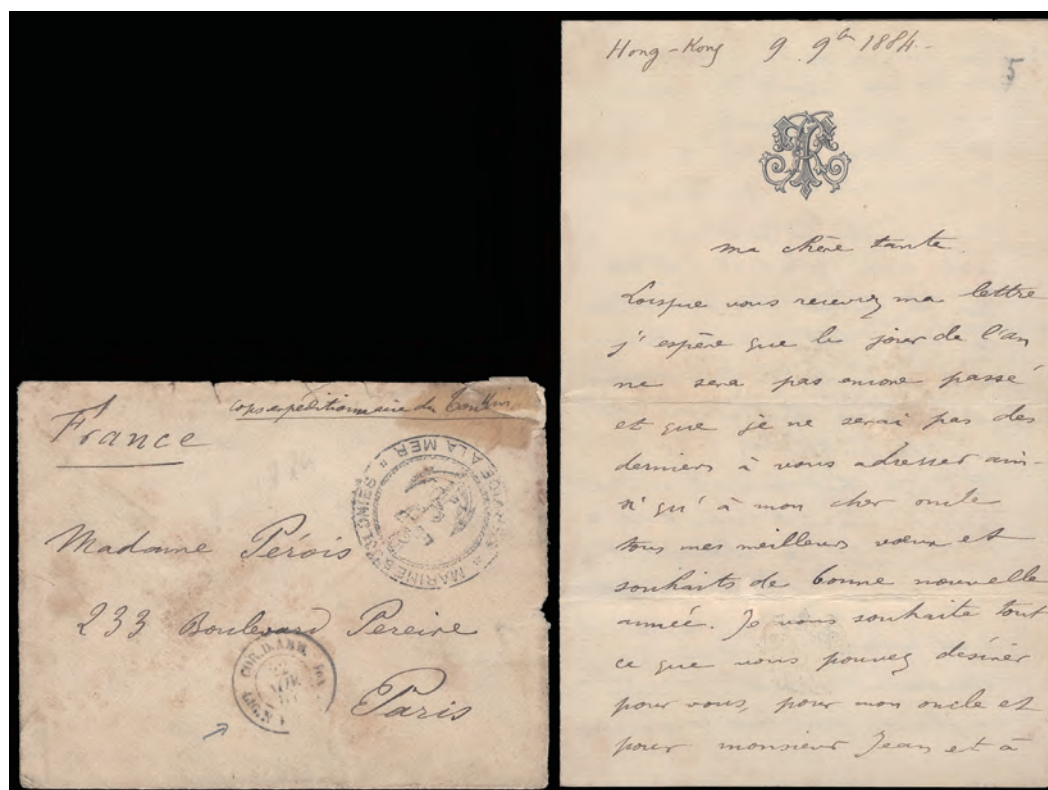 France
Corps expéditionnaire du Tonkin
MARINE
A LA MER
Madame Pérois
233 Boulevard Pereire
Paris
COR. D. ARM.
Hong-Kong 9 9bre 1884.-
5
ma chère tante.
Lorsque vous recevrez ma lettre
j'espère que le jour de l'an
ne sera pas encore passé
et que je ne serai pas des
derniers à vous adresser ain-
si qu'à mon cher oncle
tous mes meilleurs vœux et
souhaits de bonne nouvelle
année. Je vous souhaite tout
ce que vous pouvez désirer
pour vous, pour mon oncle et
pour monsieur Jean et à